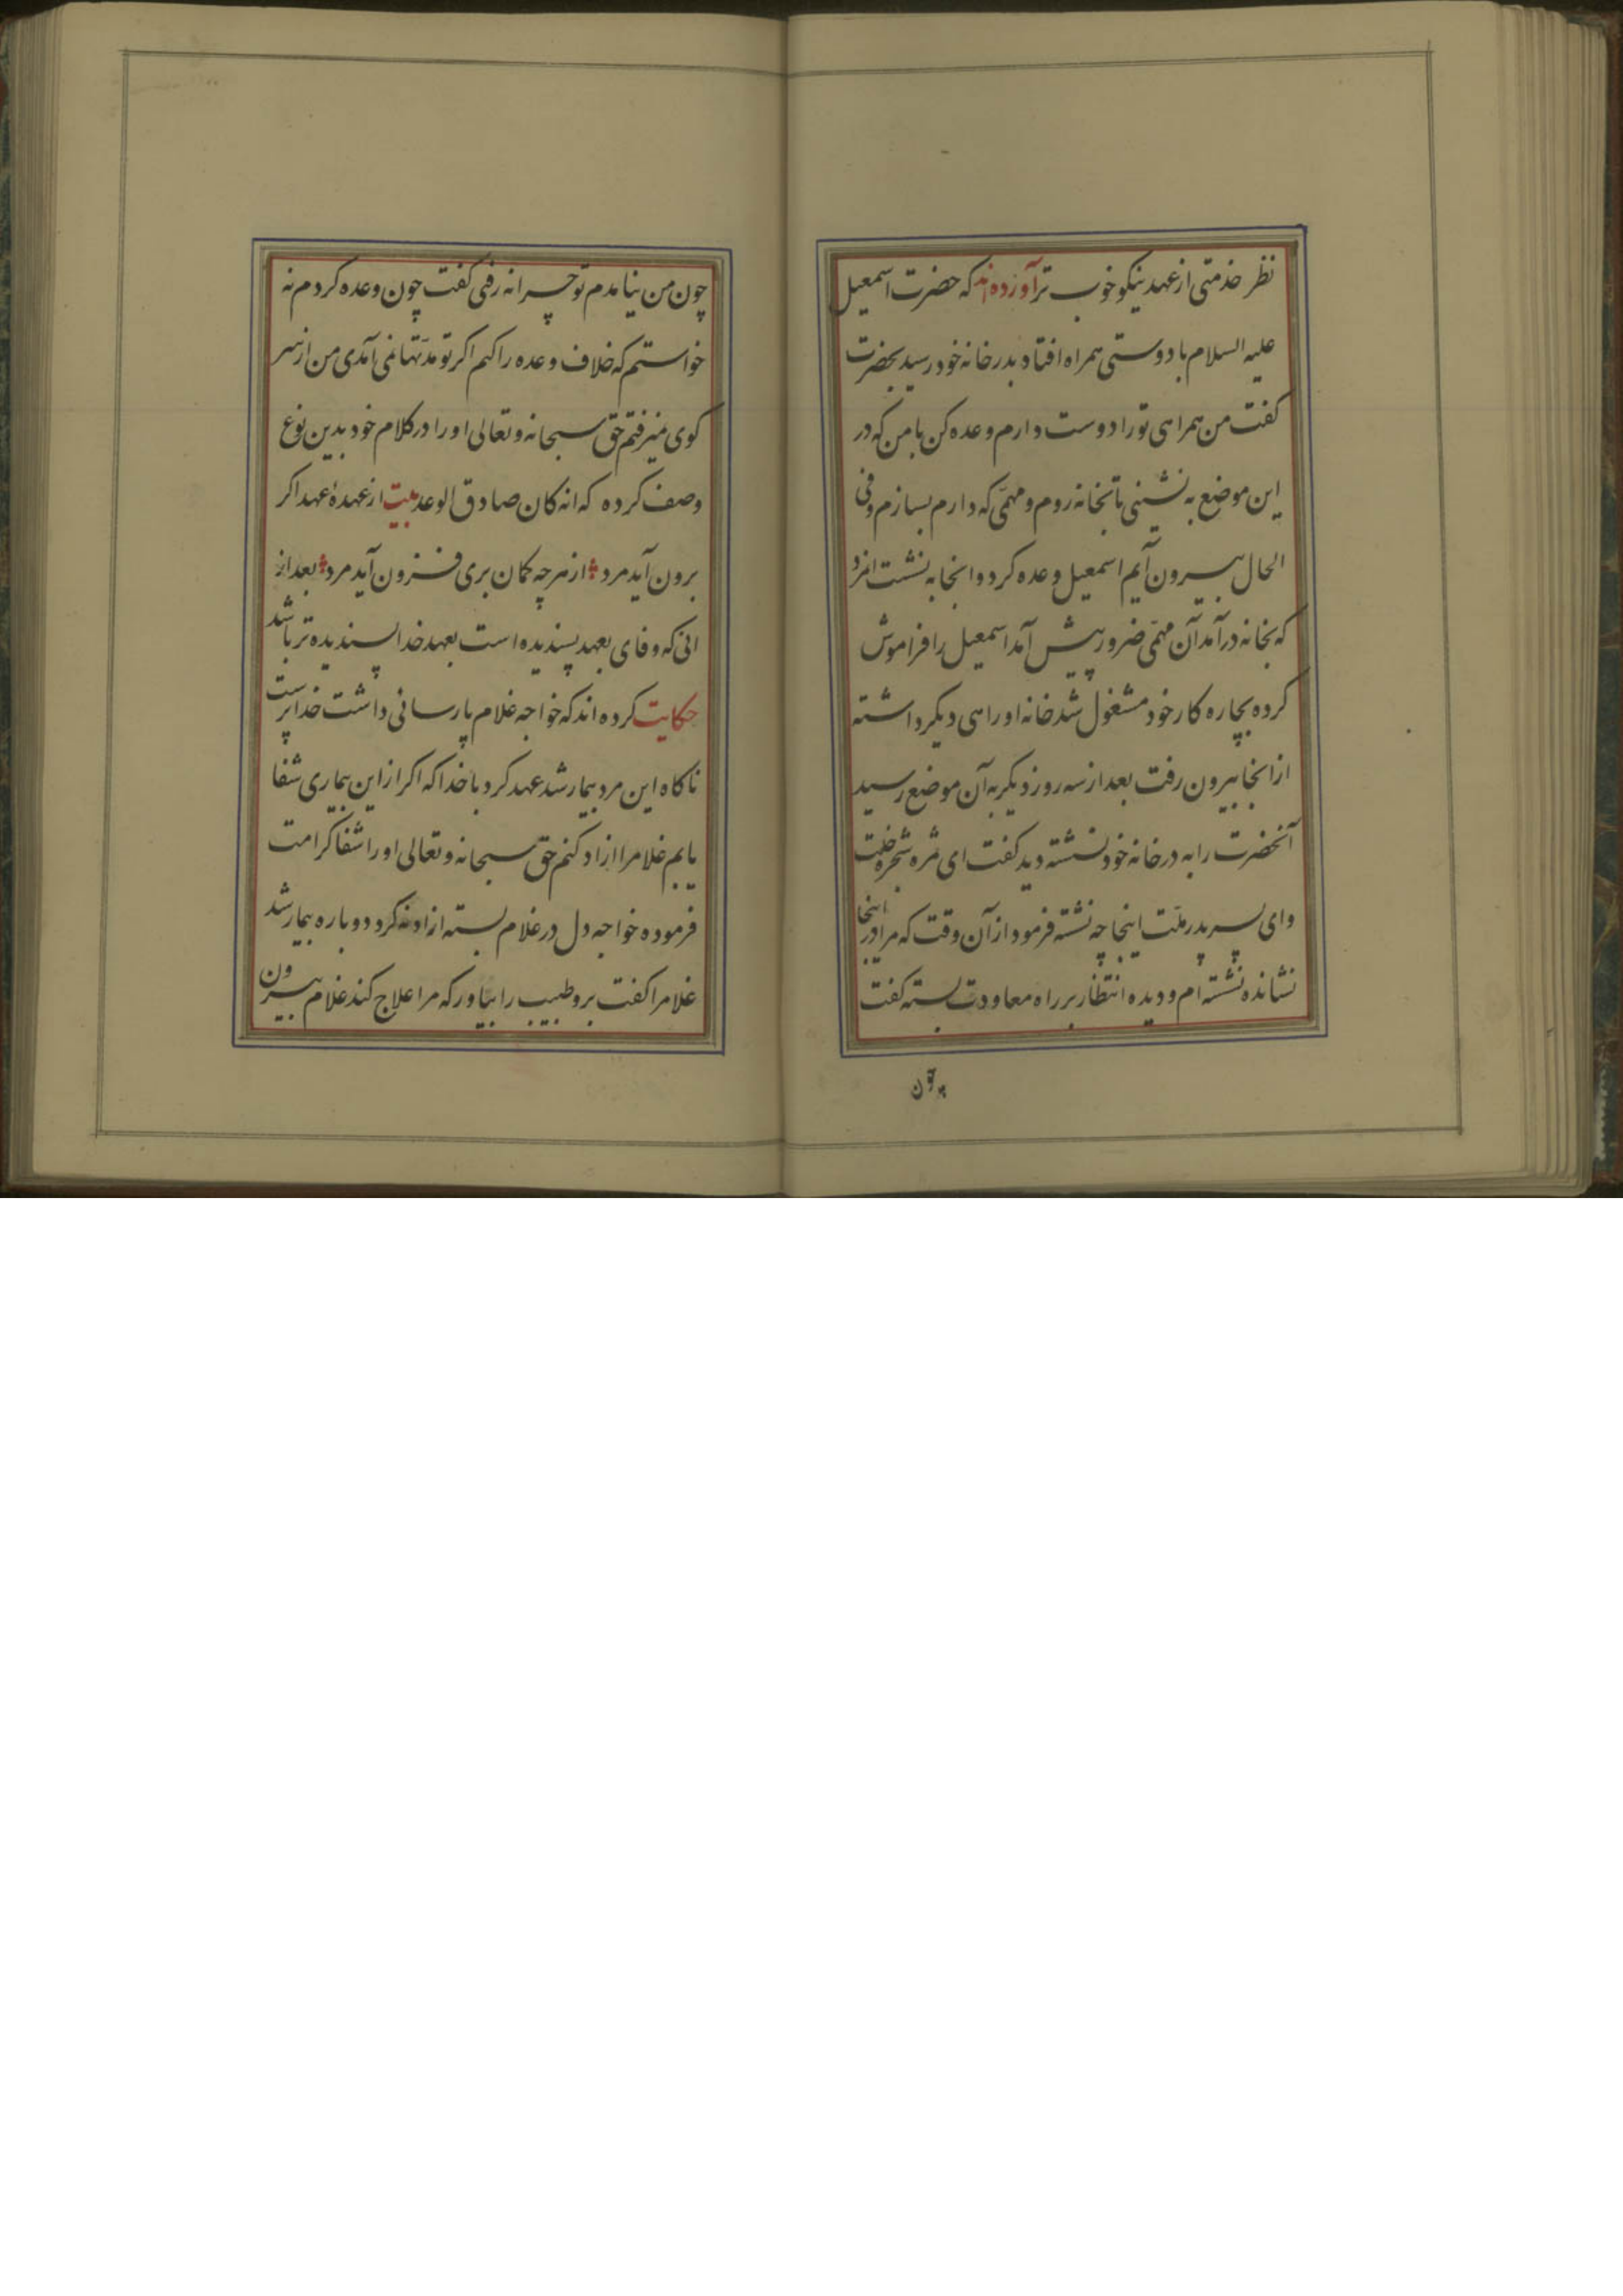 نظر خدمتی از عهد نیکو خوب تر آورده‌اند که حضرت اسمعیل
علیه السلام با دوستی همراه افتاد بدر خانه خود رسید بحضرت
کفت من همراهی تو را دوست دارم وعده کن با من که در
این موضع به نشینی تا بخانه روم و مهمّی که دارم بسازم و فی
الحال بیرون آیم اسمعیل وعده کرد و انجا به نشست
که بخانه در آمد آن مهمّی ضرور پیش آمد اسمعیل را فراموش
کرده بچاره کار خود مشغول شد خانه او راهی دیکر داشته
از انجا بیرون رفت بعد از سه روز دیکر به آن موضع رسید
آنحضرت را به در خانه خود نشسته دید کفت ای ثمره شجره خلت
و ای پسر پدر ملّت اینجا چه نشسته فرمود از آن وقت که مرا در اینجا
نشانده نشسته ام و دیده انتظار بر راه معاودت بسته کفت
چون
چون من نیامدم تو چرا نه رفتی کفت چون وعده کردم نه
خواستم که خلاف وعده را کنم اکر تو مدّتها نمی آمدی من از سر
کوی نمیرفتم حق سبحانه و تعالی او را در کلام خود بدین نوع
وصف کرده که انه کان صادق الوعد بیت از عهدهٔ عهد اکر
برون آید مرد از هر چه کمان بری فزون آید مرد بعد از
انی که وفای بعهد پسندیده است بعهد خدا پسندیده تر باشد
حکایت کرده اند که خواجه غلام پارسائی داشت خدا پرست
ناکاه این مرد بیمار شد عهد کرد با خدا که اکر از این بیماری شفا
یابم غلامرا ازاد کنم حق سبحانه و تعالی او را شفا کرامت
فرموده خواجه دل در غلام بسته ازاد نه کرد دوباره بیمار شد
غلامرا کفت برو طبیب را بیاور که مرا علاج کند غلام بیرون